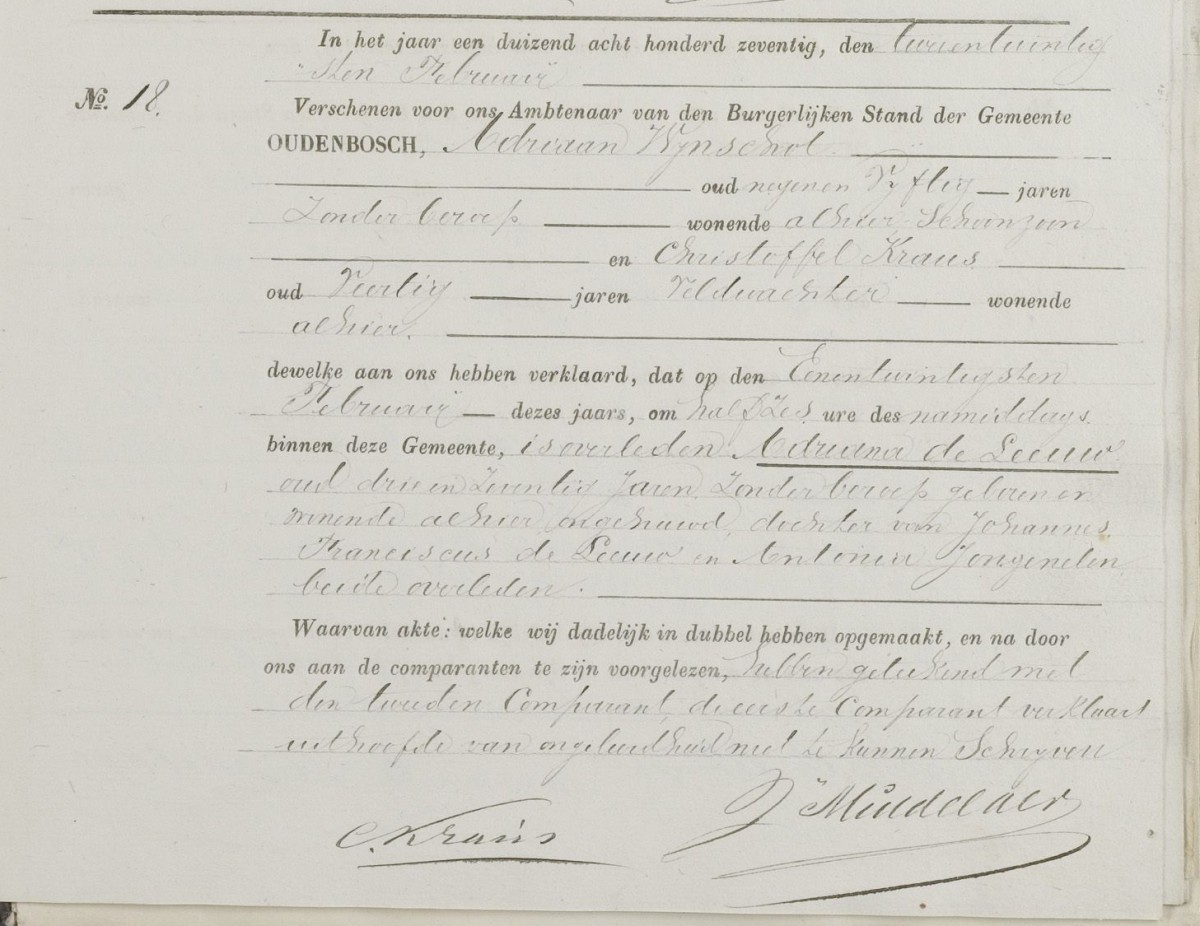 In het jaar een duizend acht honderd zeventig, den tweeentwintig
sten Februarij
No. 18.
Verschenen voor ons Ambtenaar van den Burgerlijken Stand der Gemeente
OUDENBOSCH, Adriaan Wijnschot
oud negenen Vijftig jaren
Zonder beroep wonende alhier
en Christoffel Kraus
oud Veertig jaren Veldwachter wonende
alhier.
dewelke aan ons hebben verklaard, dat op den Eenentwintigsten
Februarij dezes jaars, om half Zes ure des namiddags
binnen deze Gemeente, is overleden Adriana de Leeuw
oud drie en Zeventig Jaren Zonder beroep geboren en
wonende alhier ongehuwd, dochter van Johannes
Franciscus de Leeuw en Antonia Jongenelen
beide overleden.
Waarvan akte: welke wij dadelijk in dubbel hebben opgemaakt, en na door
ons aan de comparanten te zijn voorgelezen, hebben geteekend met
den tweeden Comparant, de eerste Comparant verklaart
uithoofde van ongeleerdheid niet te kunnen Schrijven
C. Kraus